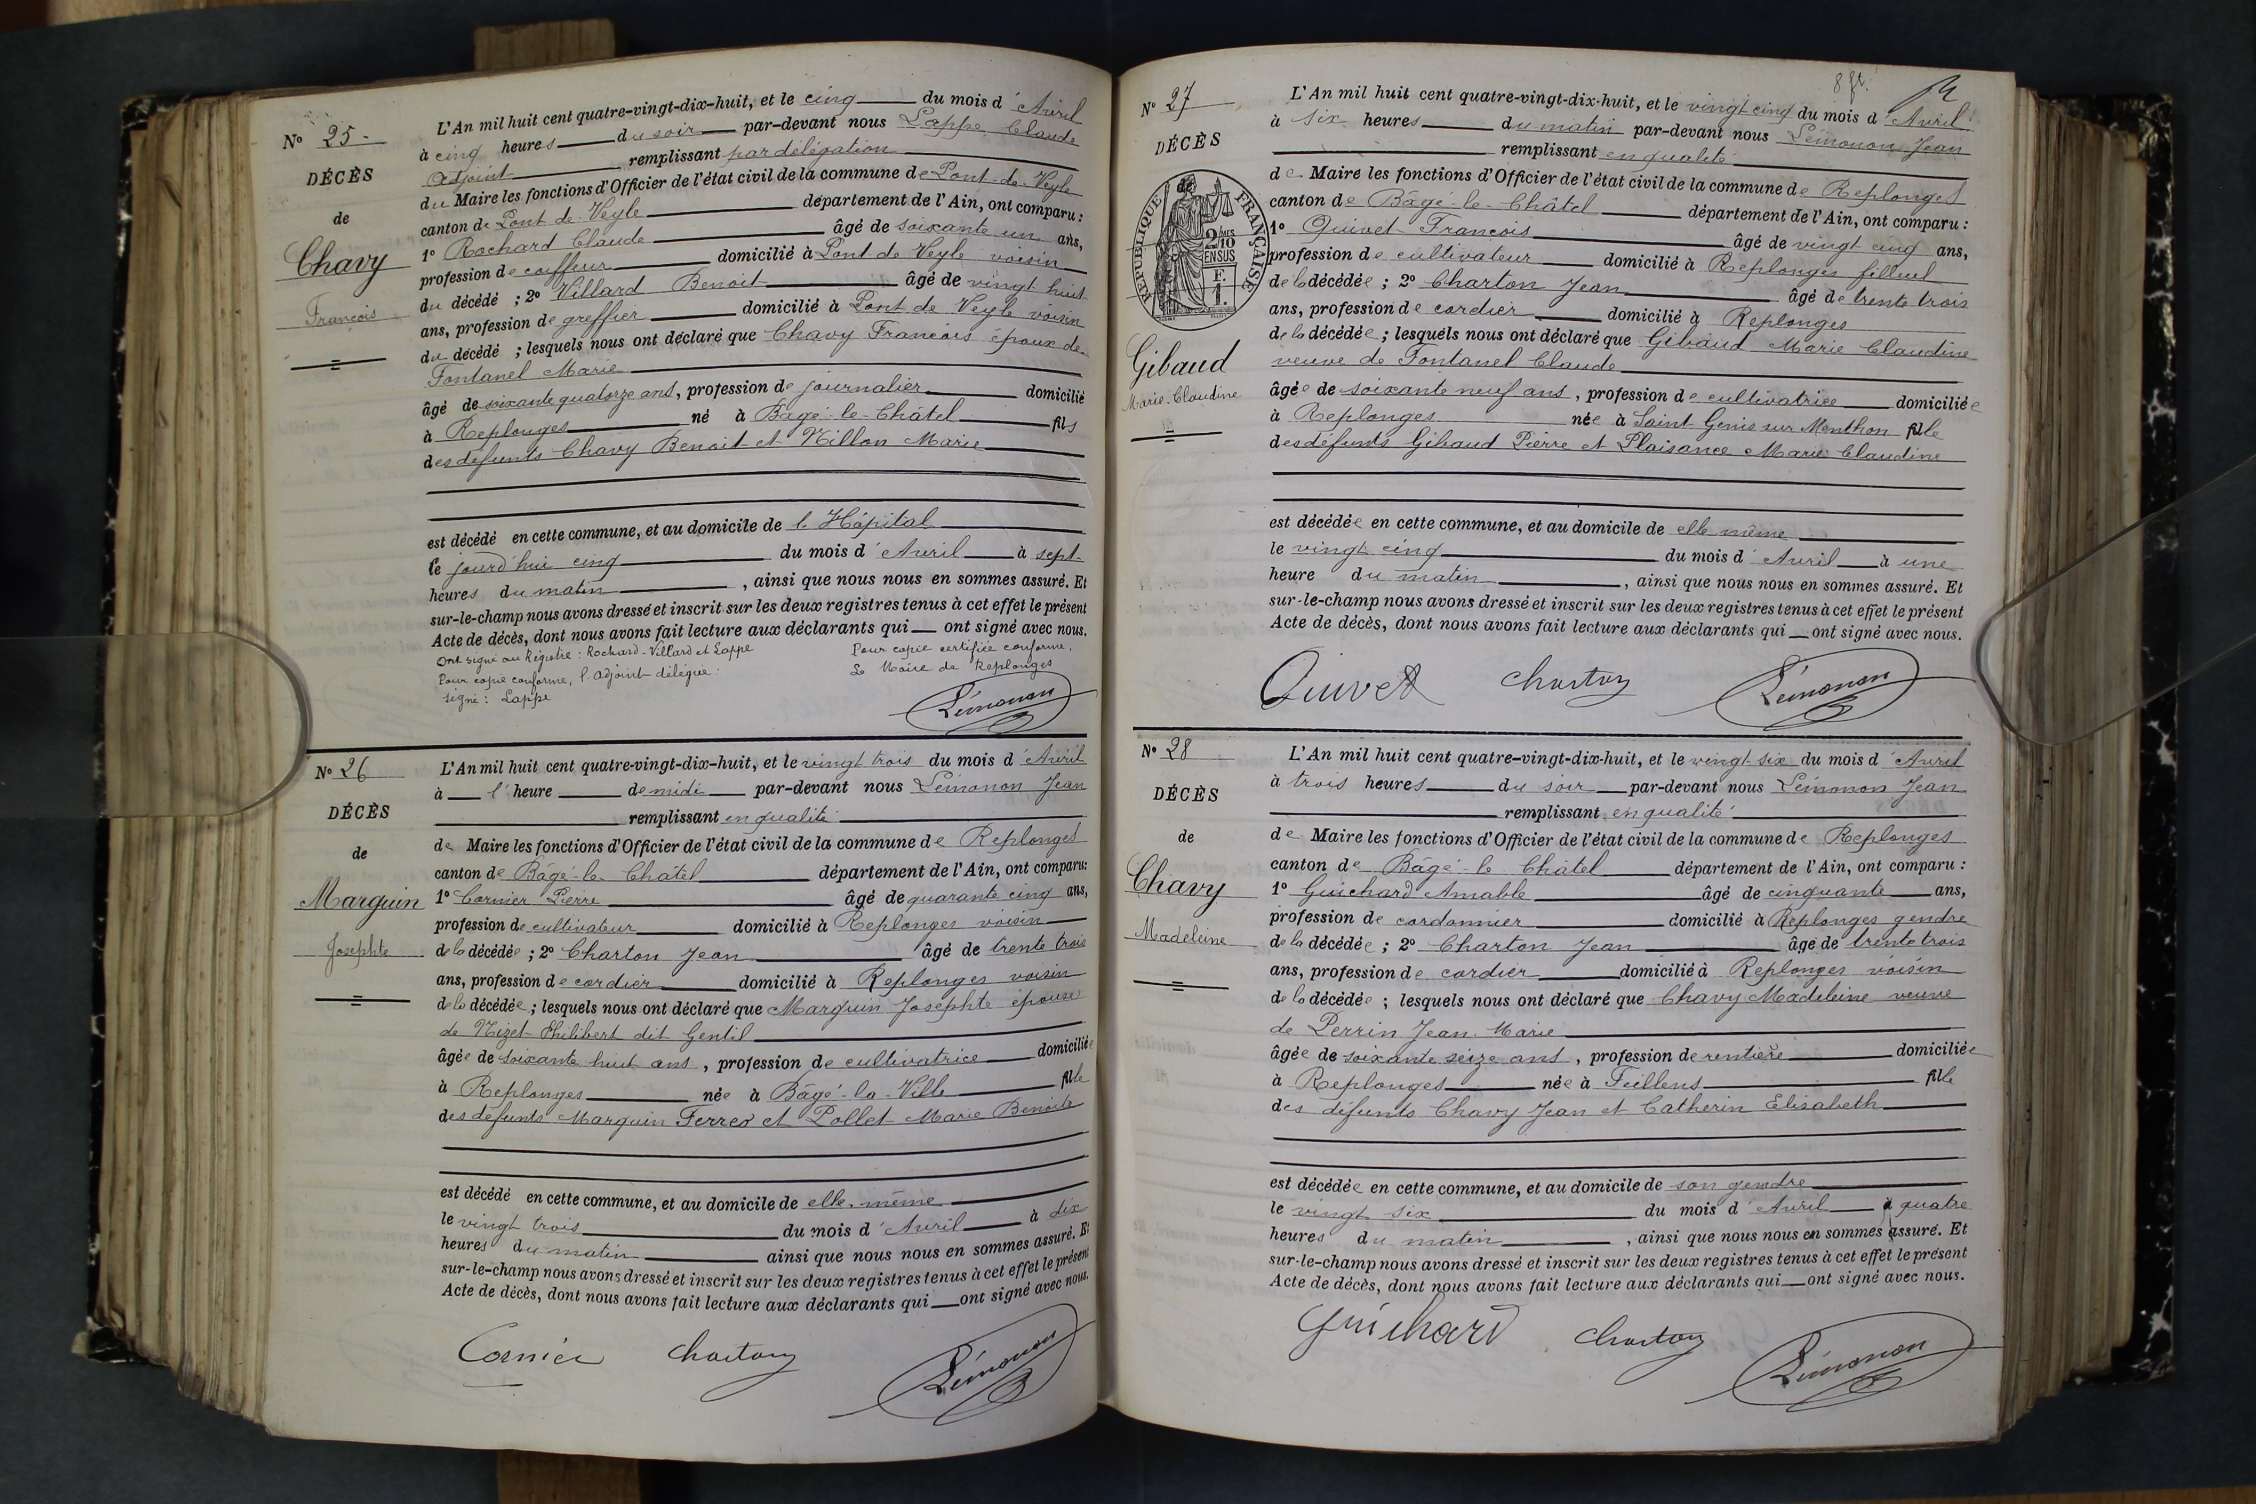 N° 25
DÉCÈS
de
Chavy
François
L'An mil huit cent quatre-vingt-dix-huit, et le cinq du mois d'Avril
à cinq heures du soir par-devant nous Lappe Claude
Adjoint remplissant par délégation
du Maire les fonctions d'Officier de l'état civil de la commune de Pont-de-Veyle
canton de Pont de Veyle département de l'Ain, ont comparu :
1° Rochard Claude âgé de soixante un ans,
profession de coiffeur domicilié à Pont de Veyle voisin
du décédé ; 2° Villard Benoit âgé de vingt huit
ans, profession de greffier domicilié à Pont de Veyle voisin
du décédé ; lesquels nous ont déclaré que Chavy François époux de
Fontanel Marie
âgé de soixante quatorze ans, profession de journalier domicilié
à Replonges né à Bâgé-le-Châtel fils
des défunts Chavy Benoit et Nillon Marie
est décédé en cette commune, et au domicile de l'Hôpital
le jourd'hui cinq du mois d'Avril à sept
heures du matin, ainsi que nous nous en sommes assuré. Et
sur-le-champ nous avons dressé et inscrit sur les deux registres tenus à cet effet le présent
Acte de décès, dont nous avons fait lecture aux déclarants qui ont signé avec nous.
Ont signé au Registre : Rochard - Villard et Lappe
Pour copie conforme, l'adjoint délégué :
signé : Lappe
Pour copie certifiée conforme.
Le Maire de Replonges
Lémonon
N° 26
DÉCÈS
de
Marguin
Josephte
L'An mil huit cent quatre-vingt-dix-huit, et le vingt trois du mois d'Avril
à l'heure de midi par-devant nous Lémonon Jean
remplissant en qualité
de Maire les fonctions d'Officier de l'état civil de la commune de Replonges
canton de Bâgé-le-Châtel département de l'Ain, ont comparu :
1° Cornier Pierre âgé de quarante cinq ans,
profession de cultivateur domicilié à Replonges voisin
de la décédée ; 2° Charton Jean âgé de trente trois
ans, profession de cordier domicilié à Replonges voisin
de la décédée ; lesquels nous ont déclaré que Marguin Josephte épouse
de Nizet Philibert dit Gentil
âgée de soixante huit ans, profession de cultivatrice domiciliée
à Replonges née à Bâgé-la-Ville fille
des défunts Marguin Ferréo et Pollet Marie Benoite
est décédé en cette commune, et au domicile de elle-même
le vingt trois du mois d'Avril à dix
heures du matin ainsi que nous nous en sommes assuré. Et
sur-le-champ nous avons dressé et inscrit sur les deux registres tenus à cet effet le présent
Acte de décès, dont nous avons fait lecture aux déclarants qui ont signé avec nous.
Cornier Charton Lémonon
8 ft.
N° 27
DÉCÈS
de
RÉPUBLIQUE FRANÇAISE
2/10 EN SUS
F. 1.
Gibaud
Marie-Claudine
L'An mil huit cent quatre-vingt-dix-huit, et le vingt cinq du mois d'Avril
à six heures du matin par-devant nous Lémonon Jean
remplissant en qualité
de Maire les fonctions d'Officier de l'état civil de la commune de Replonges
canton de Bâgé-le-Châtel département de l'Ain, ont comparu :
1° Quivet François âgé de vingt cinq ans,
profession de cultivateur domicilié à Replonges filleul
de la décédée ; 2° Charton Jean âgé de trente trois
ans, profession de cordier domicilié à Replonges
de la décédée ; lesquels nous ont déclaré que Gibaud Marie Claudine
veuve de Fontanel Claude
âgée de soixante neuf ans, profession de cultivatrice domiciliée
à Replonges née à Saint Genis sur Menthon fille
des défunts Gibaud Pierre et Plaisance Marie Claudine
est décédée en cette commune, et au domicile de elle même
le vingt cinq du mois d'Avril à une
heure du matin, ainsi que nous nous en sommes assuré. Et
sur-le-champ nous avons dressé et inscrit sur les deux registres tenus à cet effet le présent
Acte de décès, dont nous avons fait lecture aux déclarants qui ont signé avec nous.
Quivet Charton Lémonon
N° 28
DÉCÈS
de
Chavy
Madeleine
L'An mil huit cent quatre-vingt-dix-huit, et le vingt six du mois d'Avril
à trois heures du soir par-devant nous Lémonon Jean
remplissant en qualité
de Maire les fonctions d'Officier de l'état civil de la commune de Replonges
canton de Bâgé-le-Châtel département de l'Ain, ont comparu :
1° Guichard Amable âgé de cinquante ans,
profession de cordonnier domicilié à Replonges gendre
de la décédée ; 2° Charton Jean âgé de trente trois
ans, profession de cordier domicilié à Replonges voisin
de la décédée ; lesquels nous ont déclaré que Chavy Madeleine veuve
de Perrin Jean-Marie
âgée de soixante seize ans, profession de rentière domiciliée
à Replonges née à Feillens fille
des défunts Chavy Jean et Catherin Elisabeth
est décédée en cette commune, et au domicile de son gendre
le vingt six du mois d'Avril à quatre
heures du matin, ainsi que nous nous en sommes assuré. Et
sur-le-champ nous avons dressé et inscrit sur les deux registres tenus à cet effet le présent
Acte de décès, dont nous avons fait lecture aux déclarants qui ont signé avec nous.
Guichard Charton Lémonon